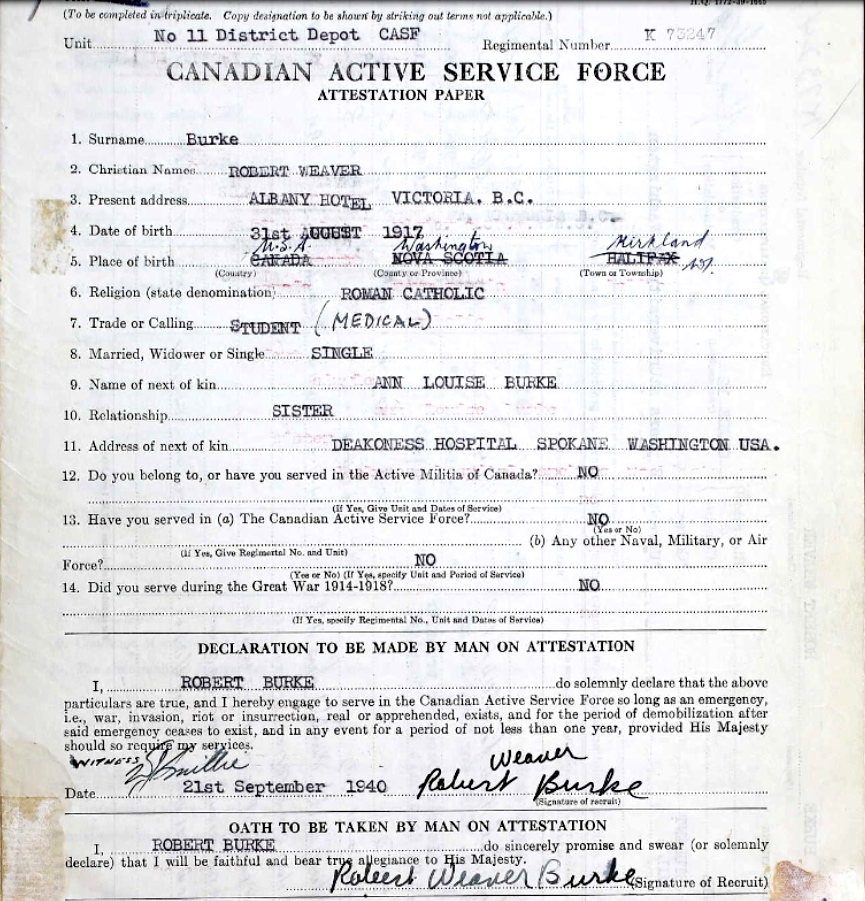 (To be completed in triplicate. Copy designation to be shown by striking out terms not applicable.)
Unit No 11 District Depot CASF Regimental Number K 73247
CANADIAN ACTIVE SERVICE FORCE
ATTESTATION PAPER
1. Surname Burke
2. Christian Names ROBERT WEAVER
3. Present address ALBANY HOTEL VICTORIA. B.C.
4. Date of birth 31st AUGUST 1917
U.S.A. Washington Kirkland
5. Place of birth CANADA NOVA SCOTIA HALIFAX
(Country) (County or Province) (Town or Township)
6. Religion (state denomination) ROMAN CATHOLIC
7. Trade or Calling STUDENT (MEDICAL)
8. Married, Widower or Single SINGLE
9. Name of next of kin ANN LOUISE BURKE
10. Relationship SISTER
11. Address of next of kin DEAKONESS HOSPITAL SPOKANE WASHINGTON USA.
12. Do you belong to, or have you served in the Active Militia of Canada? NO
(If Yes, Give Unit and Dates of Service)
13. Have you served in (a) The Canadian Active Service Force? NO
(Yes or No)
(b) Any other Naval, Military, or Air
(If Yes, Give Regimental No. and Unit)
Force? NO
(Yes or No) (If Yes, specify Unit and Period of Service)
14. Did you serve during the Great War 1914-1918? NO
(If Yes, specify Regimental No., Unit and Dates of Service)
DECLARATION TO BE MADE BY MAN ON ATTESTATION
I, ROBERT BURKE do solemnly declare that the above
particulars are true, and I hereby engage to serve in the Canadian Active Service Force so long as an emergency,
i.e., war, invasion, riot or insurrection, real or apprehended, exists, and for the period of demobilization after
said emergency ceases to exist, and in any event for a period of not less than one year, provided His Majesty
should so require my services.
WITNESS Smillie Weaver
Date 21st September 1940 Robert Burke
(Signature of recruit)
OATH TO BE TAKEN BY MAN ON ATTESTATION
I, ROBERT BURKE do sincerely promise and swear (or solemnly
declare) that I will be faithful and bear true allegiance to His Majesty.
Robert Weaver Burke (Signature of Recruit)